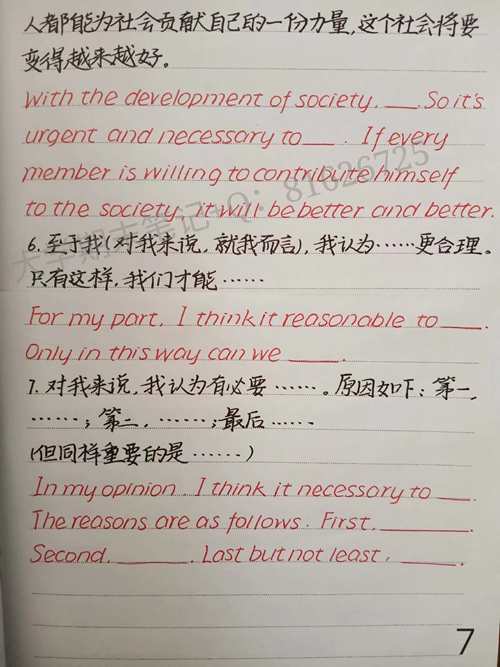 人都能为社会贡献自己的一份力量,这个社会将要
变得越来越好。
With the development of society, ___. So it's
urgent and necessary to ___. If every
member is willing to contribute himself
to the society, it will be better and better.
6.至于我(对我来说,就我而言),我认为……更合理。
只有这样,我们才能……
For my part, I think it reasonable to ___.
Only in this way can we ___.
7.对我来说,我认为有必要……。原因如下:第一,
……;第二,……;最后……
(但同样重要的是……)
In my opinion, I think it necessary to ___.
The reasons are as follows. First, ___.
Second, ___. Last but not least, ___.
7